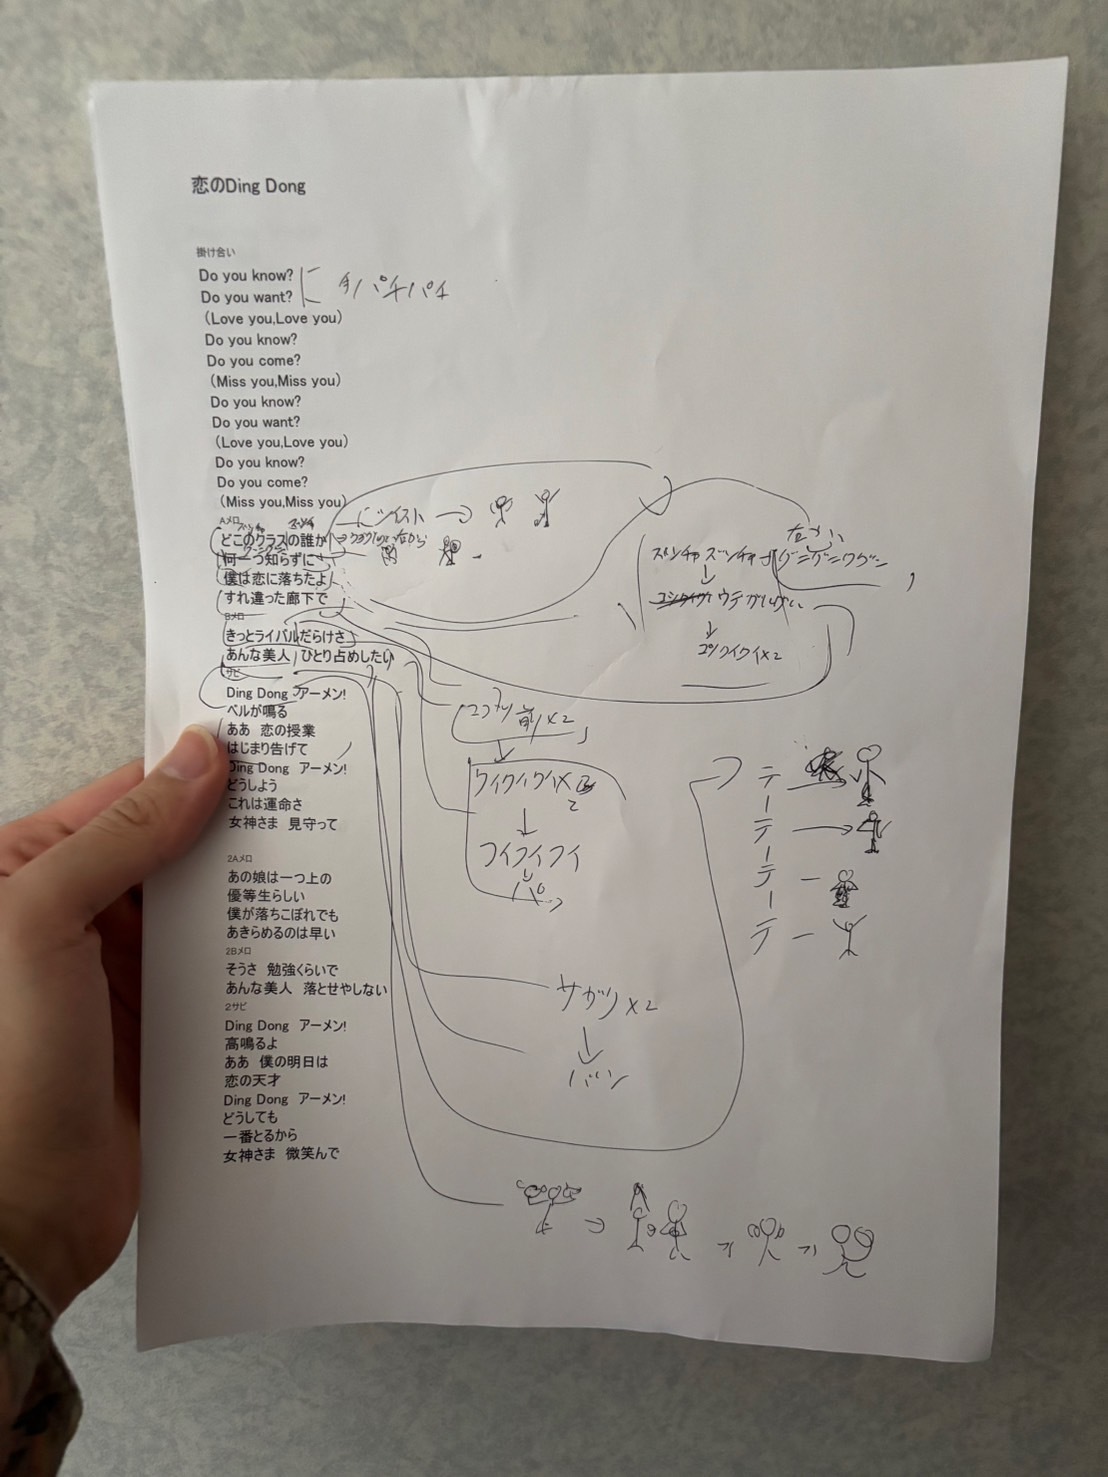 恋のDing Dong
掛け合い
Do you know?
Do you want?
手パチパチ
(Love you,Love you)
Do you know?
Do you come?
(Miss you,Miss you)
Do you know?
Do you want?
(Love you,Love you)
Do you know?
Do you come?
(Miss you,Miss you)
Aメロ
どこのクラスの誰か
何一つ知らずに
僕は恋に落ちたよ
すれ違った廊下で
Bメロ
きっとライバルだらけさ
あんな美人 ひとり占めしたい
サビ
Ding Dong アーメン!
ベルが鳴る
ああ 恋の授業
はじまり告げて
Ding Dong アーメン!
どうしよう
これは運命さ
女神さま 見守って
2Aメロ
あの娘は一つ上の
優等生らしい
僕が落ちこぼれでも
あきらめるのは早い
2Bメロ
そうさ 勉強くらいで
あんな美人 落とせやしない
2サビ
Ding Dong アーメン!
高鳴るよ
ああ 僕の明日は
恋の天才
Ding Dong アーメン!
どうしても
一番とるから
女神さま 微笑んで
ツイスト
ズンチャ ズンチャ
前×2
フイフイフイ
パ
サガリ×2
バン
テー
テー
テー
テー